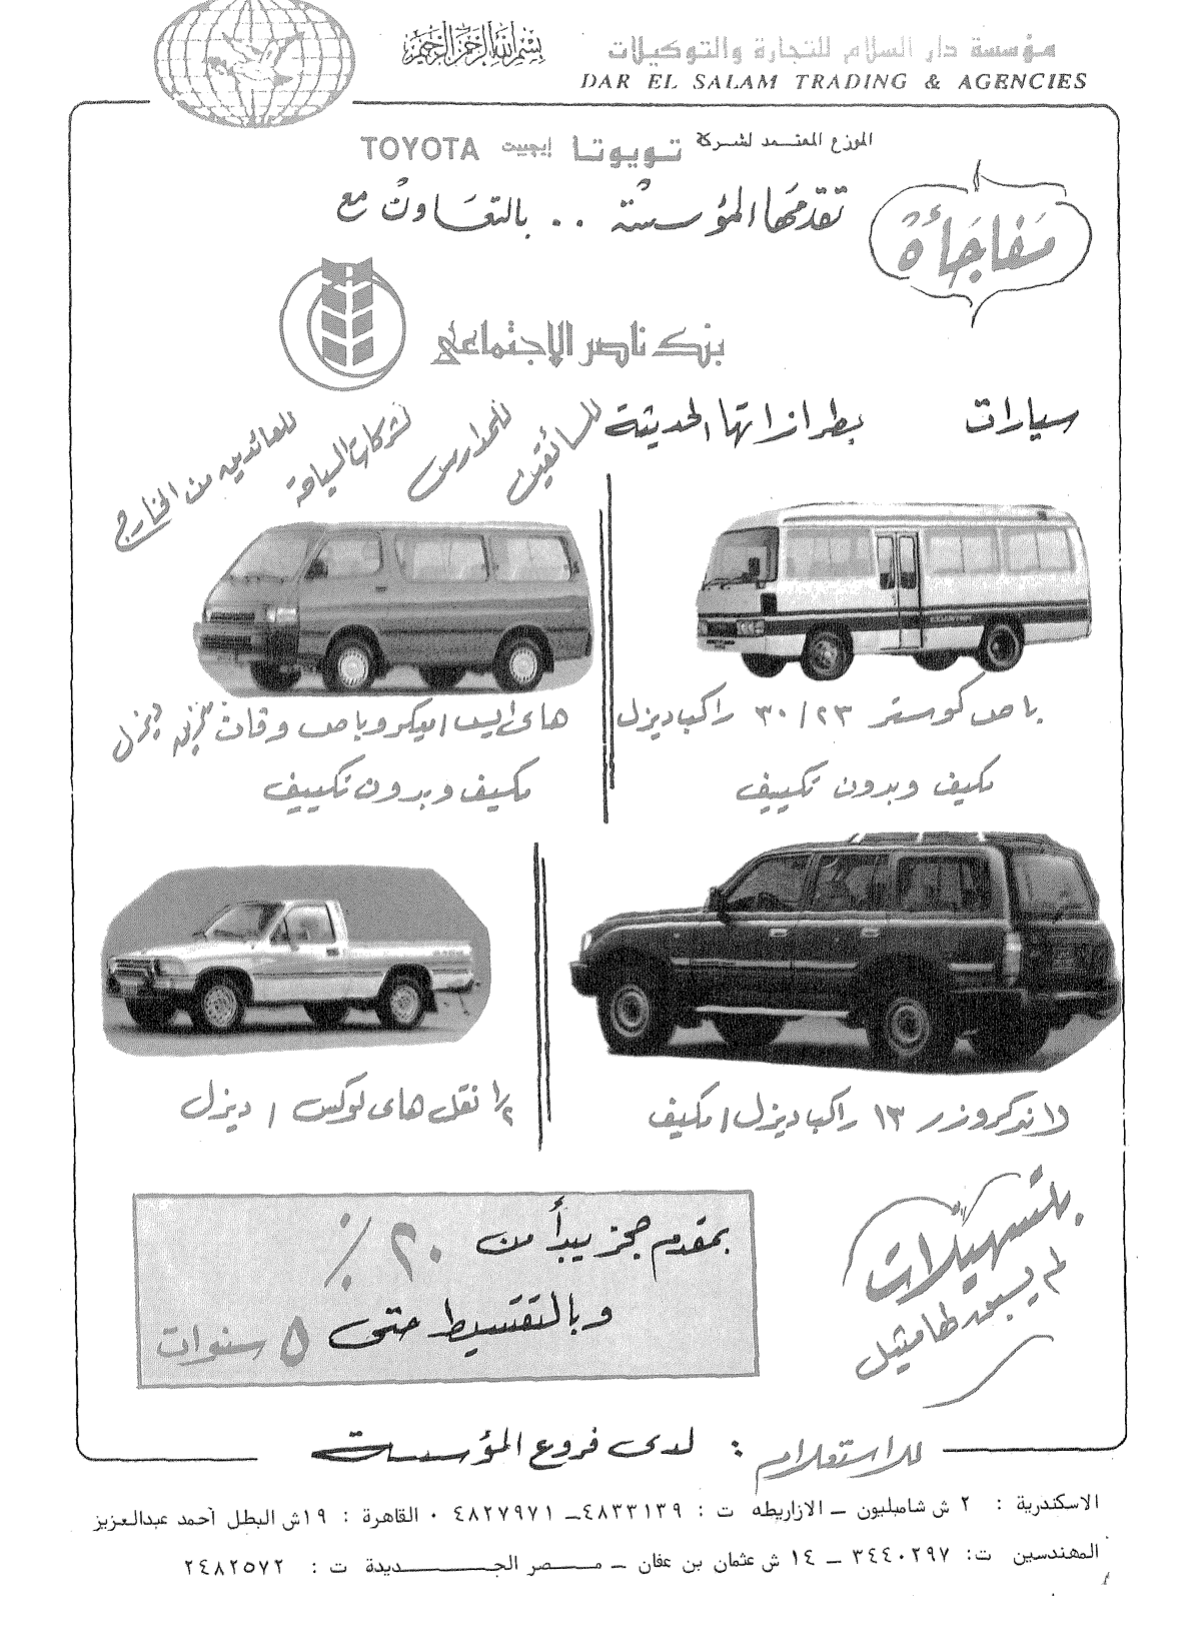 بسم الله الرحمن الرحيم
مؤسسة دار السلام للتجارة والتوكيلات
DAR EL SALAM TRADING & AGENCIES
الموزع المعتمد لشركة تويوتا إيجيبت TOYOTA
مفاجأة
تقدمها المؤسسة .. بالتعاون مع
بنك ناصر الاجتماعى
سيارات بطرازاتها الحديثة
للسائقين
للمدارس
لشركات السياحة
للعائدين من الخارج
باص كوستر ٢٣/٣٠ راكب ديزل
مكيف وبدون تكييف
هاى ايس / ميكروباص وفان بنزين ديزل
مكيف وبدون تكييف
لاندكروزر ١٣ راكب ديزل / مكيف
١/٢ نقل هاى لوكس / ديزل
بتسهيلات
لم يسبق لها مثيل
بمقدم حجز يبدأ من ٢٠٪
وبالتقسيط حتى ٥ سنوات
للاستعلام : لدى فروع المؤسسة
الاسكندرية : ٢ ش شامبليون ــ الازاريطه ت : ٤٨٣٣١٣٩ــ ٤٨٢٧٩٧١ ٠ القاهرة : ١٩ش البطل أحمد عبدالعزيز
المهندسين ت: ٣٤٤٠٢٩٧ ــ ١٤ ش عثمان بن عفان ــ مصر الجديدة ت : ٢٤٨٢٥٧٢